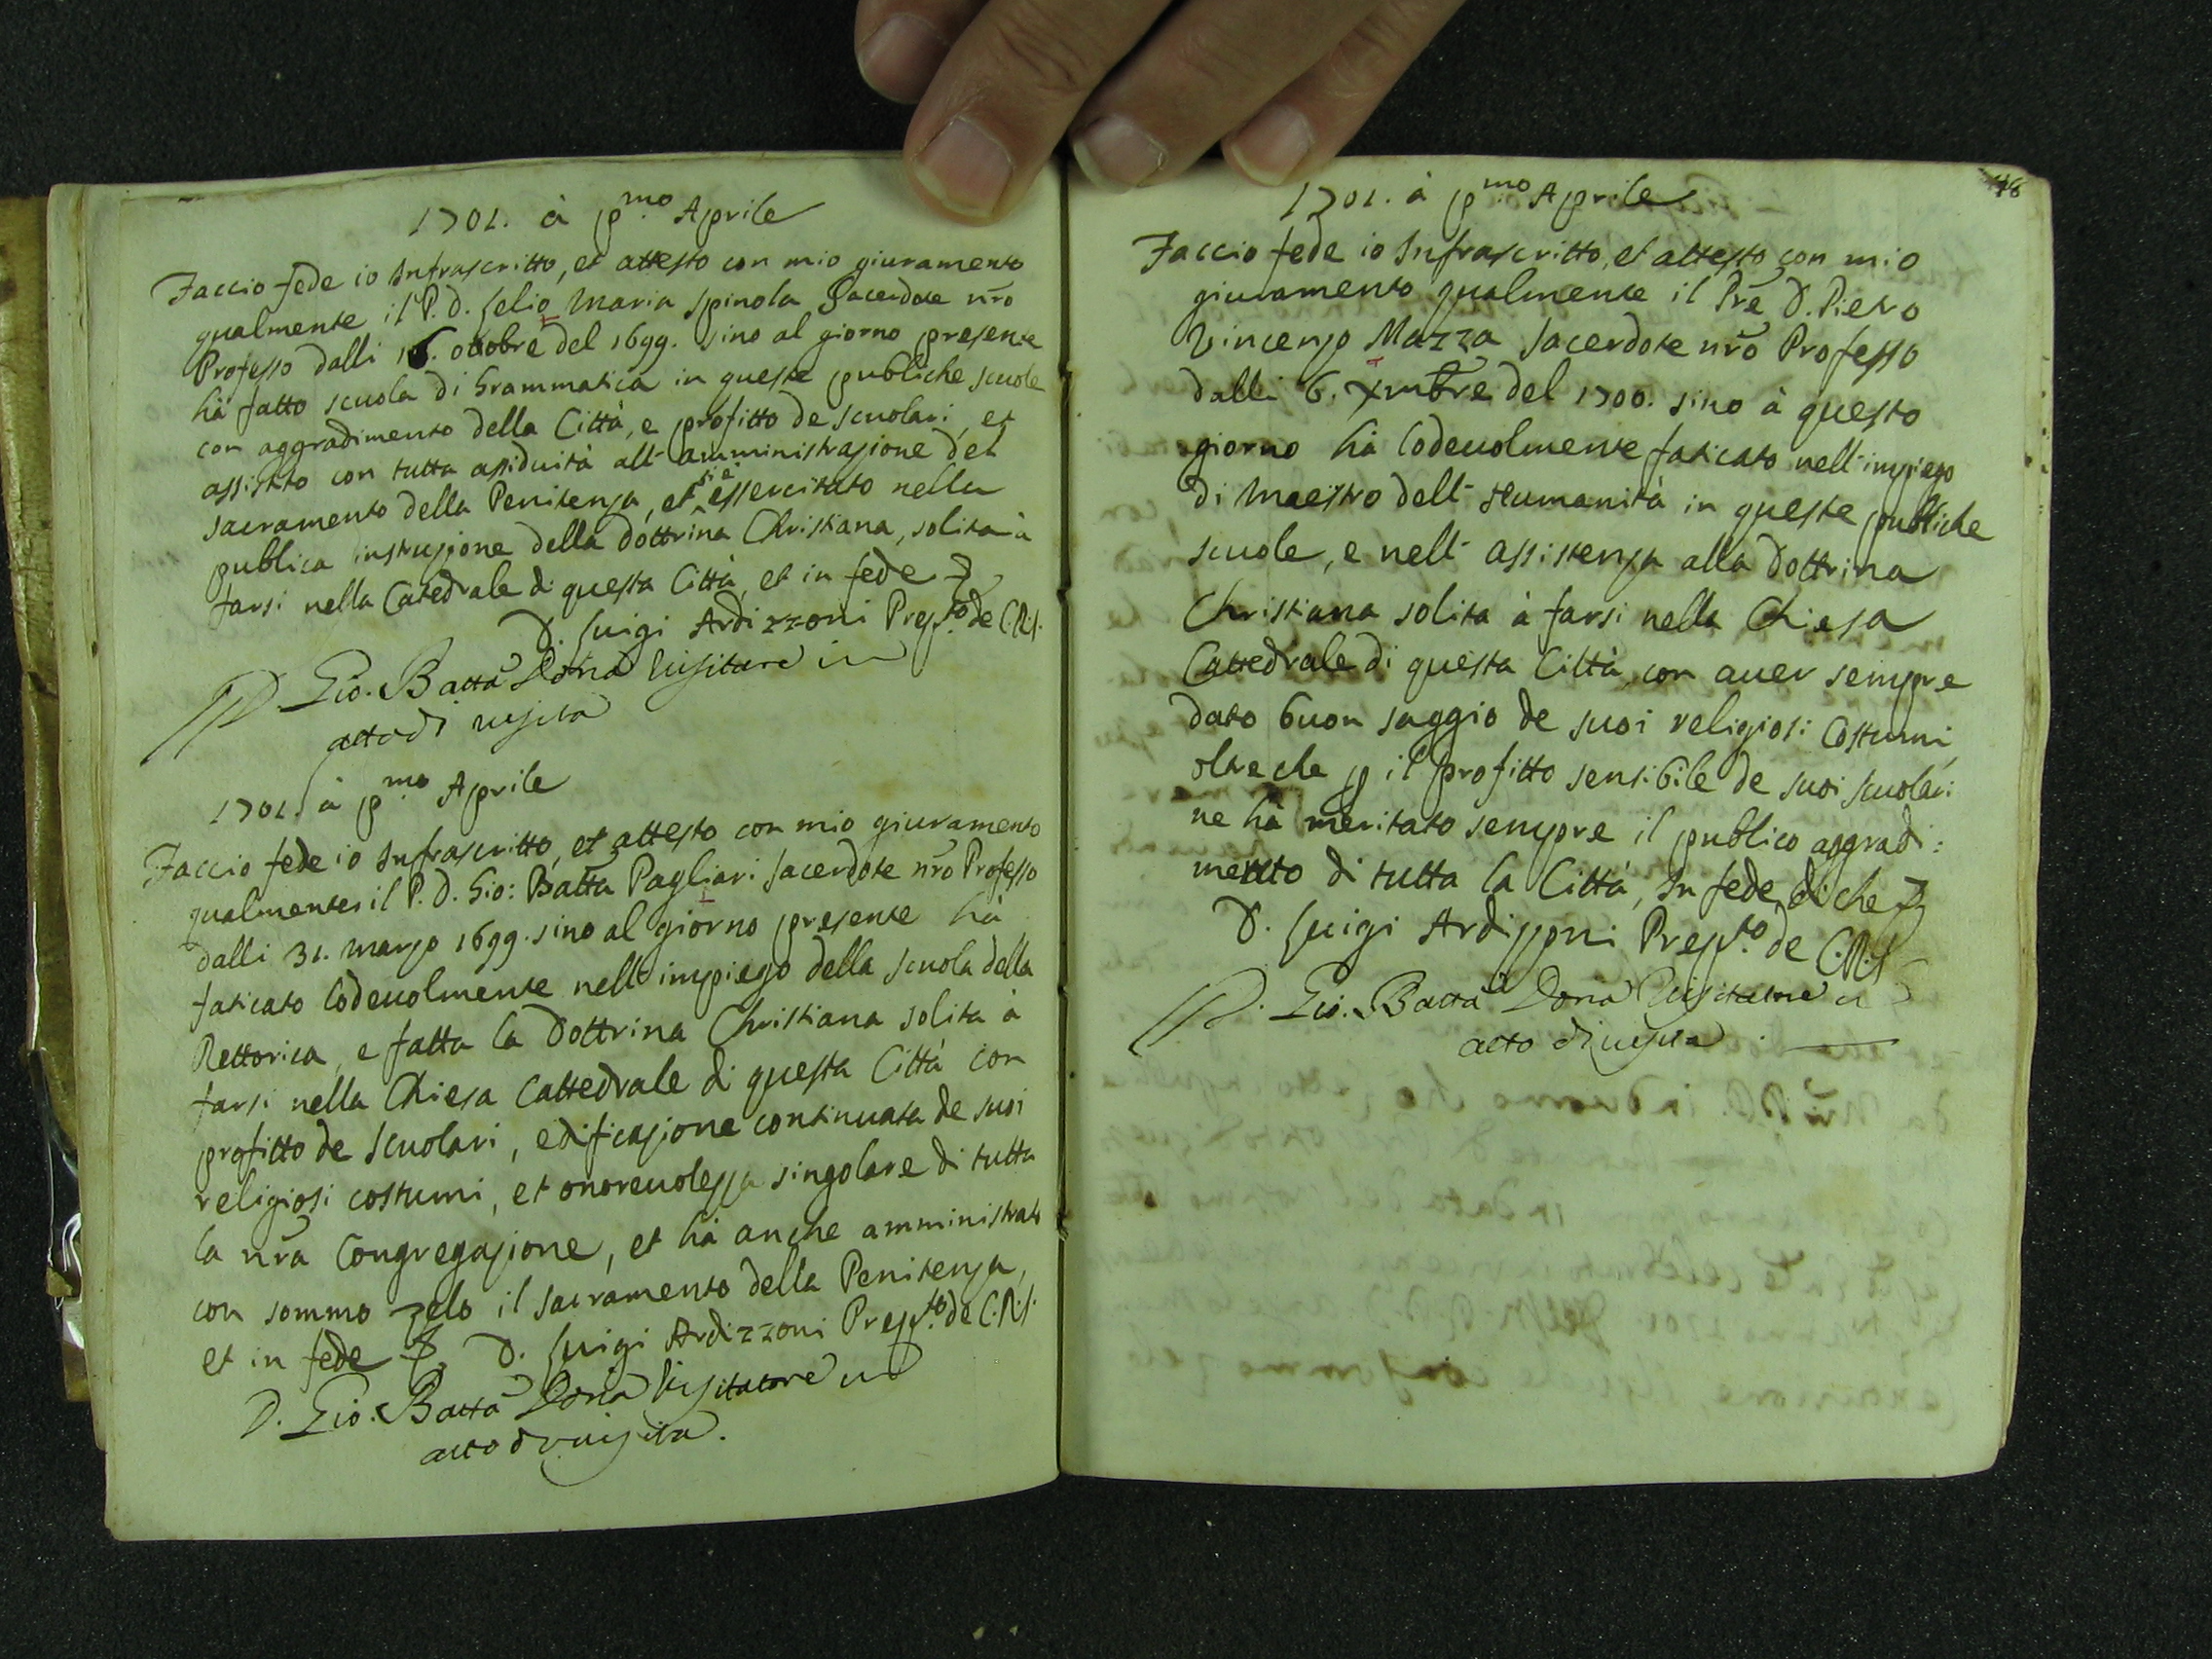 1701. à pmo Aprile
Faccio fede io Infrascritto, et attesto con mio giuramento
qualmente il P. D. Lelio Maria Spinola Sacerdote nro
Professo dalli 16. ottobre del 1699. sino al giorno presente
hà fatto scuola di Grammatica in queste publiche scuole
con aggradimento della Città, e profitto de scolari, et
assistito con tutta assiduità all' amministrazione del
sacramento della Penitenza, et si è essercitato nella
publica instruzione della dottrina Christiana, solita à
farsi nella Catedrale di questa Città, et in fede
D. Luigi Ardizzoni Prepto de C.R.S.
D. Gio. Batta Doria Visitatore in
atto di visita
1701. à pmo Aprile
Faccio fede io Infrascritto, et attesto con mio giuramento
qualmente il P. D. Gio: Batta Pagliari Sacerdote nro Professo
dalli 31. marzo 1699. sino al giorno presente hà
faticato lodevolmente nell' impiego della scuola della
Rettorica, e fatta la Dottrina Christiana solita à
farsi nella Chiesa Cattedrale di questa Città con
profitto de scuolari, edificazione continuata de suoi
religiosi costumi, et onorevolezza singolare di tutta
la nra Congregazione, et hà anche amministrato
con sommo zelo il sacramento della Penitenza,
et in fede D. Luigi Ardizzoni Prepto de C.R.S.
D. Gio. Batta Doria Visitatore in
atto di visita.
48
1701. à pmo Aprile
Faccio fede io Infrascritto, et attesto con mio
giuramento qualmente il Pre D. Pietro
Vincenzo Mazza Sacerdote nro Professo
dalli 6. Xmbre del 1700. sino à questo
giorno hà lodevolmente faticato nell' impiego
di Maestro dell' Humanità in queste publiche
scuole, e nell' assistenza alla Dottrina
Christiana solita à farsi nella Chiesa
Cattedrale di questa Città, con aver sempre
dato buon saggio de suoi religiosi Costumi,
oltre che p il profitto sensibile de suoi scuolari
ne hà meritato sempre il publico aggradi:
mento di tutta la Città, In fede di che
D. Luigi Ardizzoni Prepto de C.R.S
D. Gio. Batta Doria Visitatore in
atto di visita